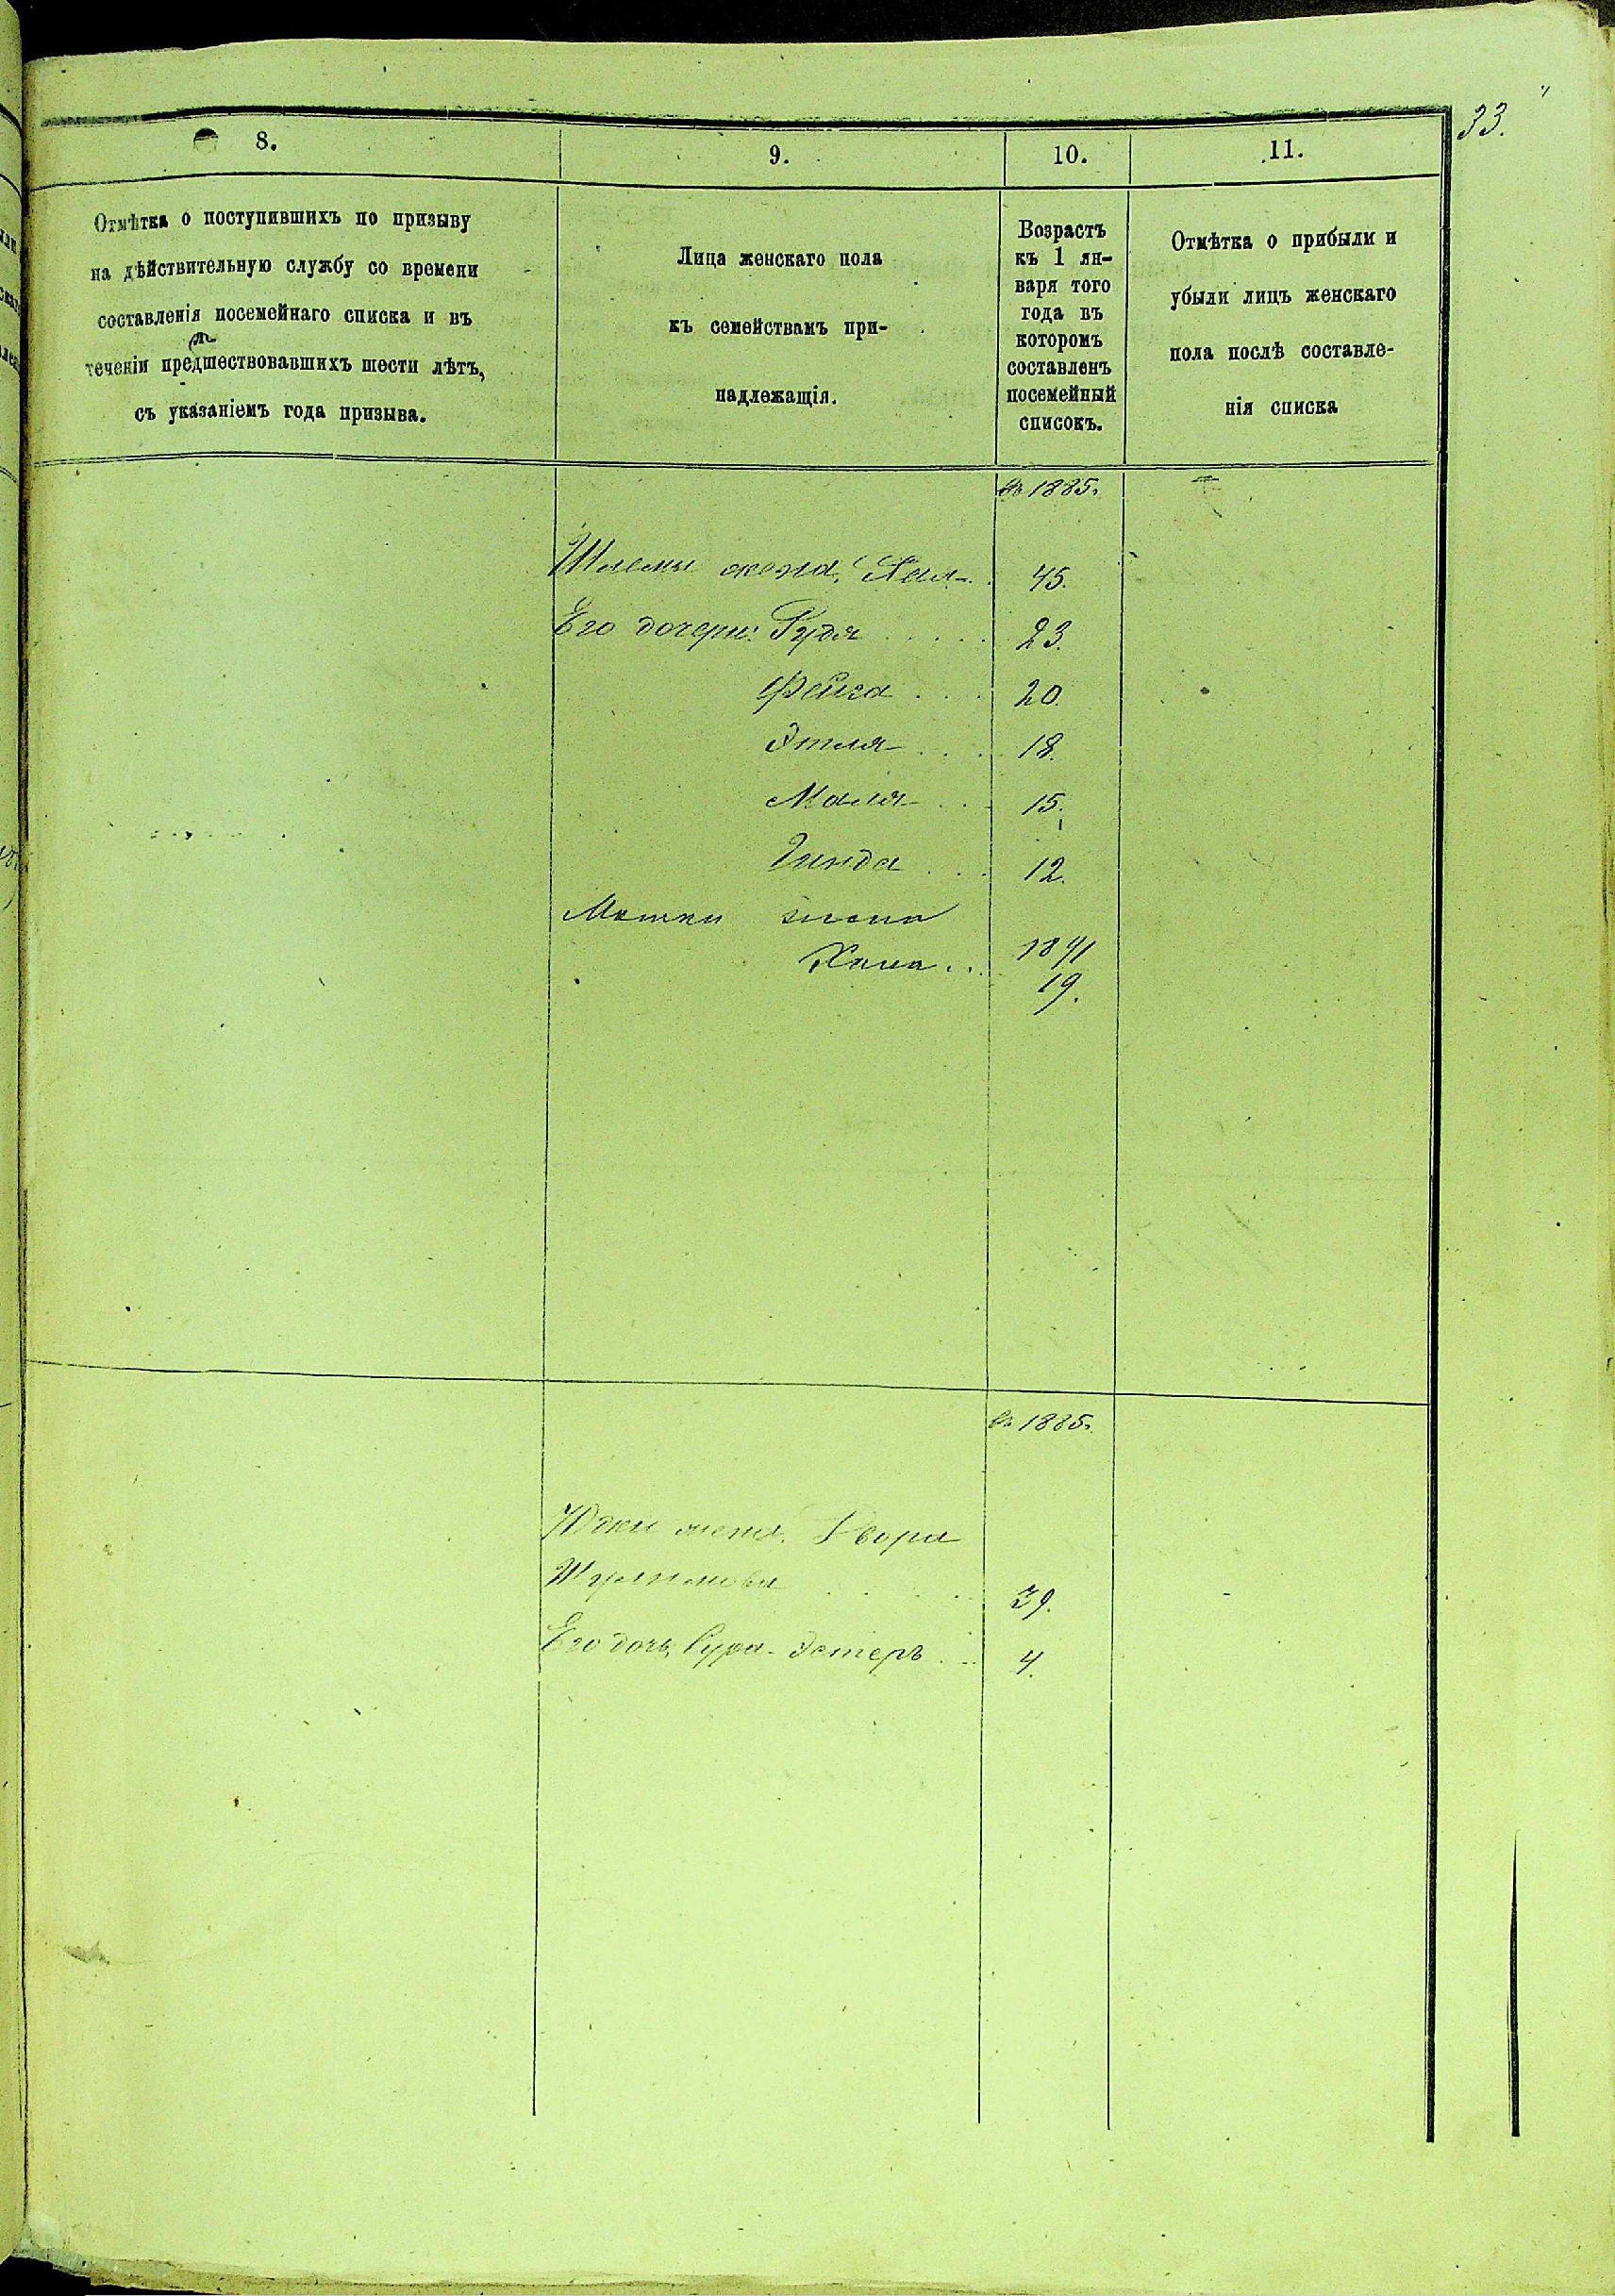 33.
8.
9.
10.
11.
Отмѣтка о поступившихъ по призыву
на дѣйствительную службу со времени
составленія посемейнаго списка и въ
теченіи предшествовавшихъ шести лѣтъ,
съ указаніемъ года призыва.
Лица женскаго пола
къ семействамъ при-
надлежащія.
Возрастъ
къ 1 ян-
варя того
года въ
которомъ
составленъ
посемейный
списокъ.
Отмѣтка о прибыли и
убыли лицъ женскаго
пола послѣ составле-
нія списка
Въ 1885.
Шлемы жена, 45.
Его дочери: Гудя 23.
Фейга 20.
Этля 18.
Маля 15.
Гинда 12.
жена
Хана 1891
19.
Въ 1885.
жена Двора
39.
Его дочь Сура-Эстеръ 4.